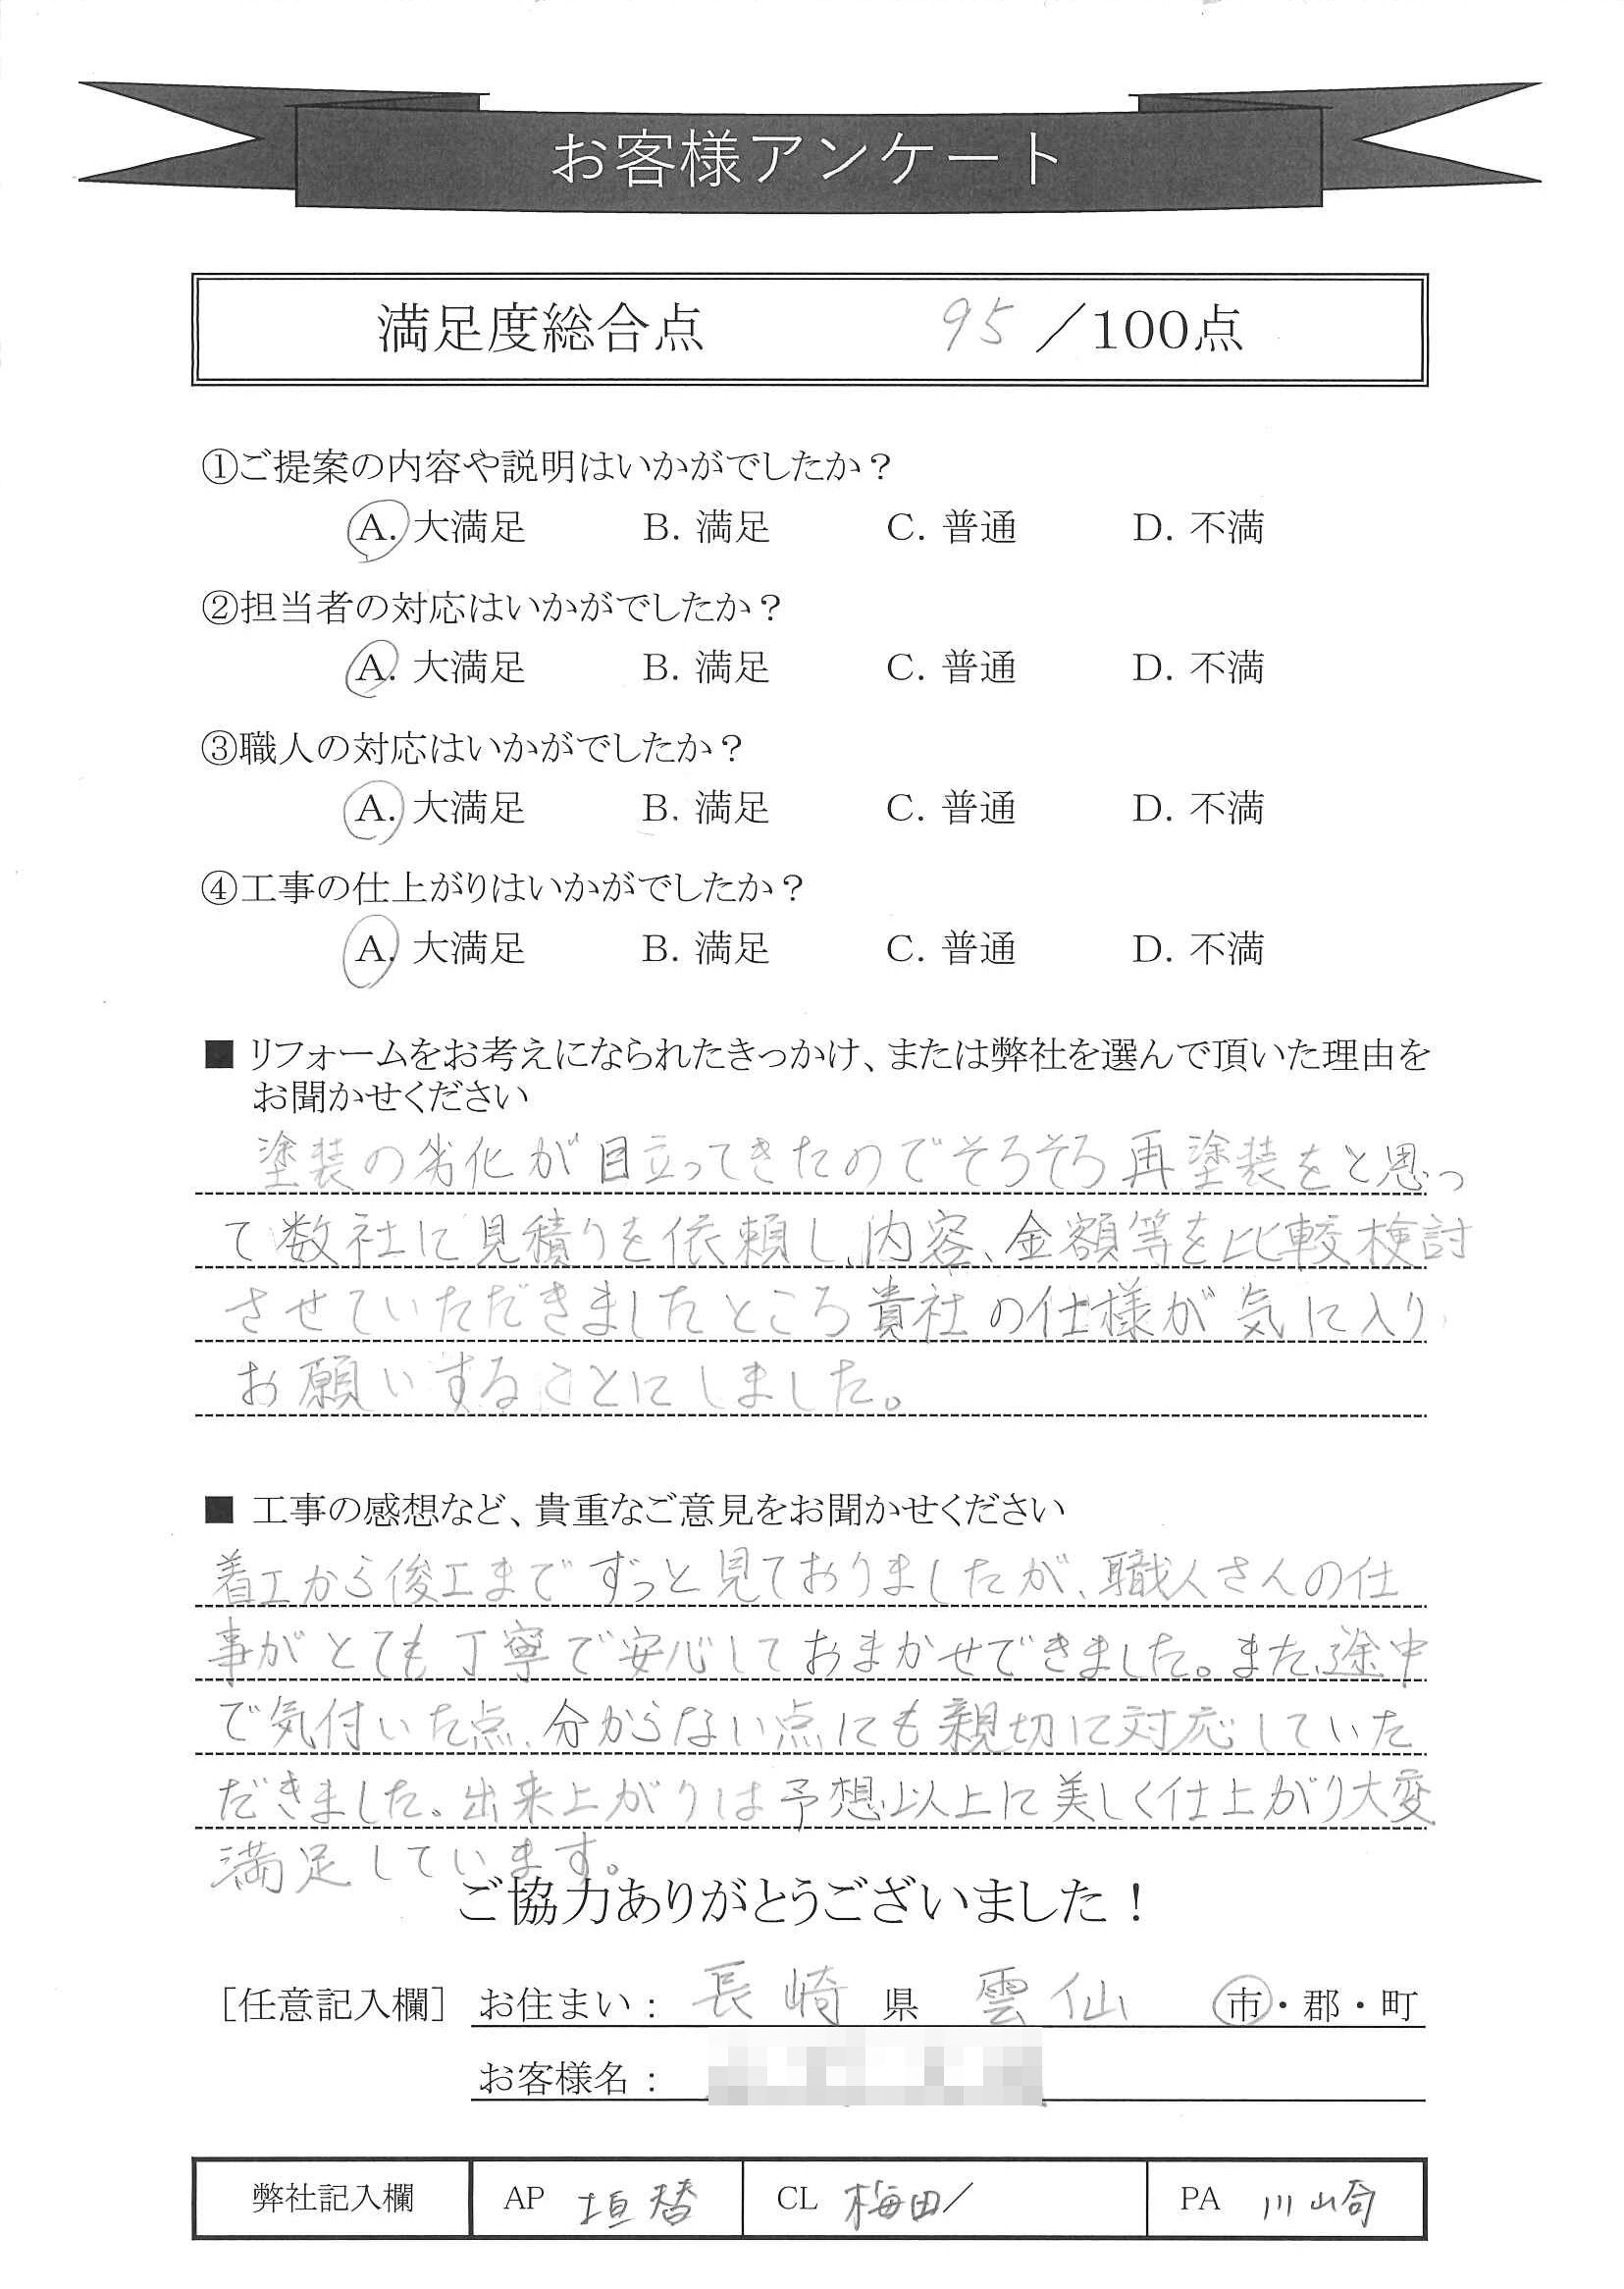 お客様アンケート
満足度総合点 95 ／100点
①ご提案の内容や説明はいかがでしたか？
A. 大満足 B. 満足 C. 普通 D. 不満
②担当者の対応はいかがでしたか？
A. 大満足 B. 満足 C. 普通 D. 不満
③職人の対応はいかがでしたか？
A. 大満足 B. 満足 C. 普通 D. 不満
④工事の仕上がりはいかがでしたか？
A. 大満足 B. 満足 C. 普通 D. 不満
■ リフォームをお考えになられたきっかけ、または弊社を選んで頂いた理由を
お聞かせください
塗装の劣化が目立ってきたのでそろそろ再塗装をと思っ
て数社に見積りを依頼し、内容、金額等を比較検討
させていただきましたところ貴社の仕様が気に入り
お願いすることにしました。
■ 工事の感想など、貴重なご意見をお聞かせください
着工から俊工までずっと見ておりましたが、職人さんの仕
事がとても丁寧で安心しておまかせできました。また、途中
で気付いた点、分からない点にも親切に対応していた
だきました。出来上がりは予想以上に美しく仕上がり大変
満足しています。
ご協力ありがとうございました！
［任意記入欄］ お住まい： 長崎 県 雲仙 市・郡・町
お客様名：
弊社記入欄 AP 垣替 CL 梅田/ PA 川崎